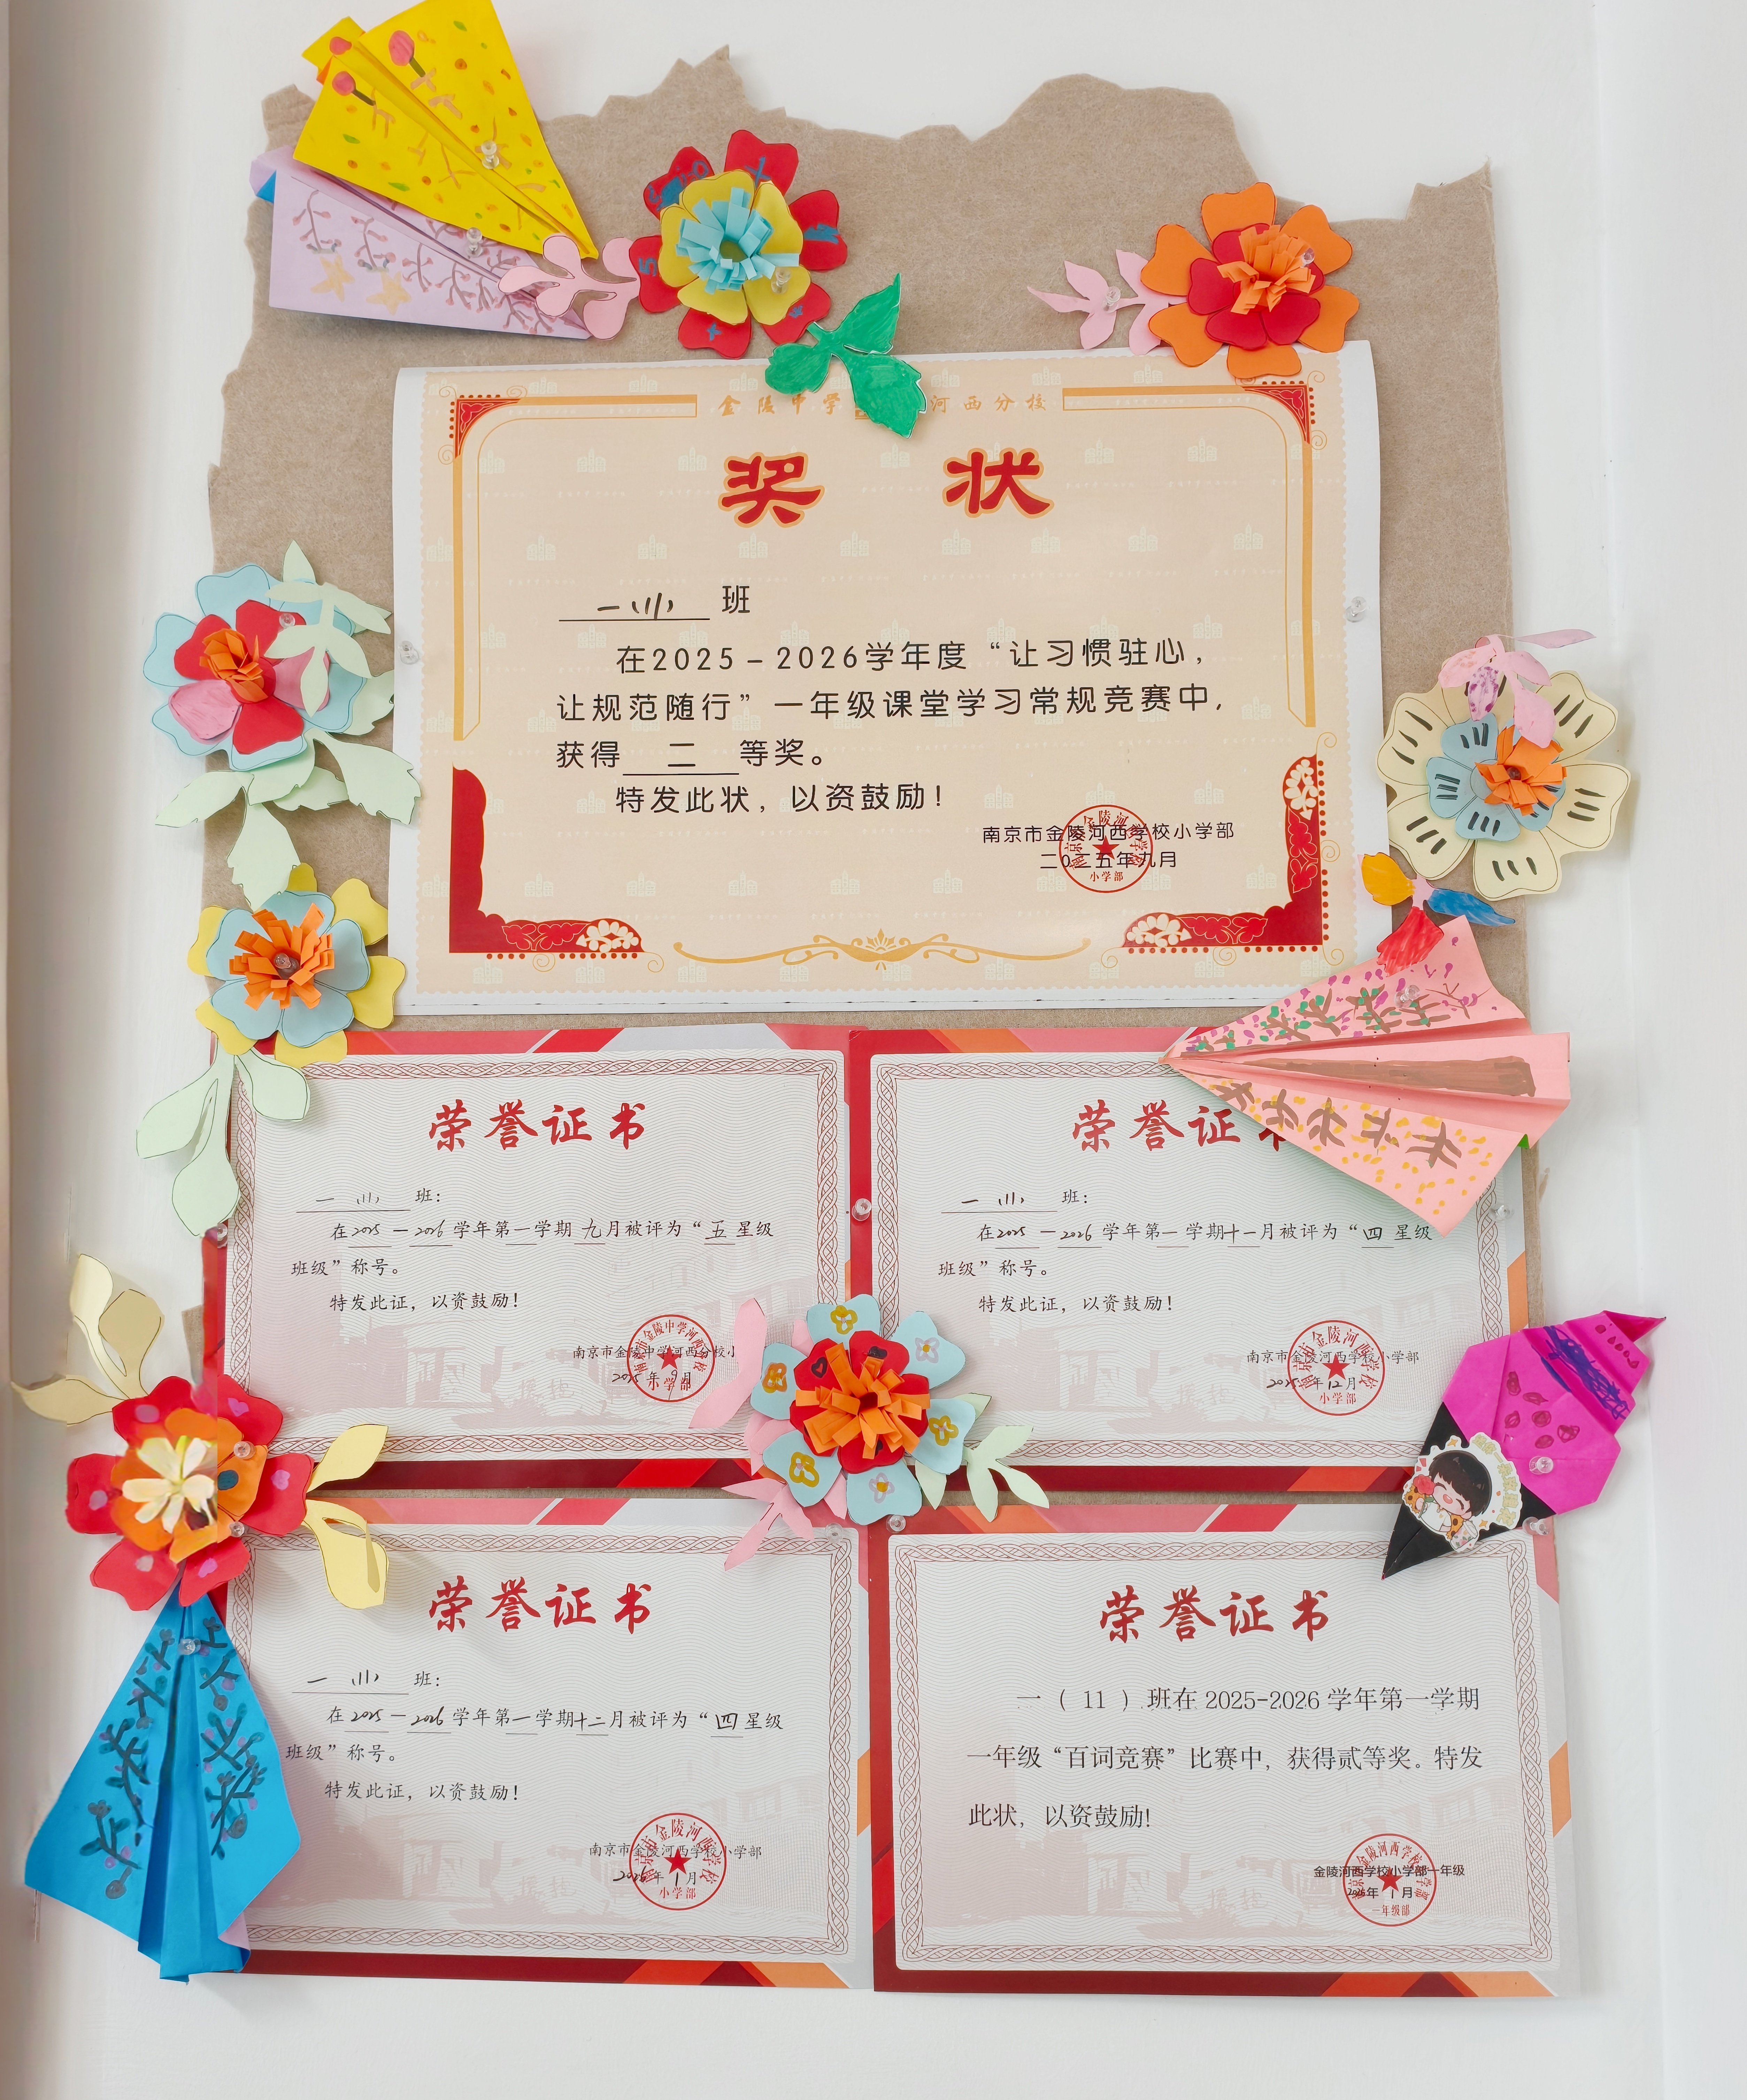 金陵中学 河西分校
奖 状
一(11) 班
在2025-2026学年度“让习惯驻心，
让规范随行”一年级课堂学习常规竞赛中，
获得 二 等奖。
特发此状，以资鼓励！
南京市金陵河西学校小学部
二〇二五年九月
小学部
荣誉证书
一(11) 班：
在2025—2026学年第一学期九月被评为“五星级
班级”称号。
特发此证，以资鼓励！
南京市金陵中学河西分校小
2025年9月
小学部
荣誉证
一(11) 班：
在2025—2026学年第一学期十一月被评为“四星级
班级”称号。
特发此证，以资鼓励！
南京市金陵河西学校小学部
2025年12月
小学部
荣誉证书
一(11) 班：
在2025—2026学年第一学期十二月被评为“四星级
班级”称号。
特发此证，以资鼓励！
南京市金陵河西学校小学部
2026年1月
小学部
荣誉证书
一（11）班在2025-2026学年第一学期
一年级“百词竞赛”比赛中，获得贰等奖。特发
此状，以资鼓励!
金陵河西学校小学部一年级
2026年1月
一年级部